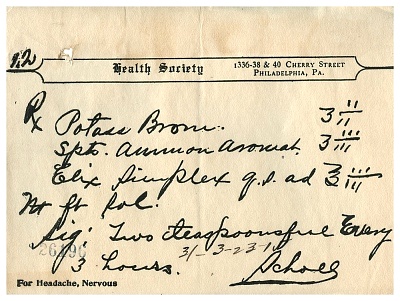 Health Society
1336-38 & 40 CHERRY STREET
PHILADELPHIA, PA.
℞ Potass Brom. ʒ ii
Spts. Ammon Aromat. ʒ iii
Elix Simplex q.s. ad ℥ iii
M ft sol.
Sig: Two teaspoonsful Every
3 hours. 31-3-23-1
26190
For Headache, Nervous